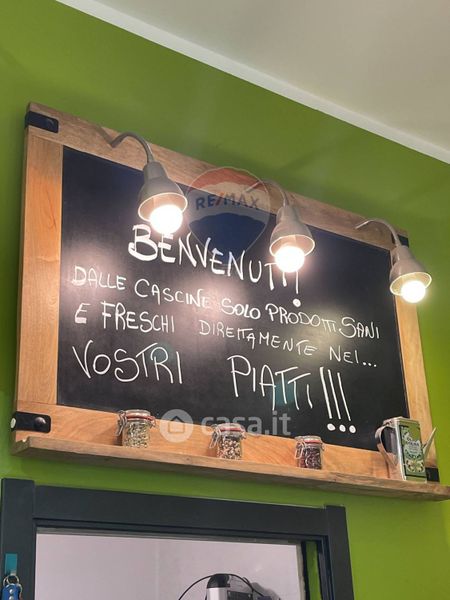 RE/MAX
BENVENUTI!
DALLE CASCINE SOLO PRODOTTI SANI
E FRESCHI DIRETTAMENTE NEI...
VOSTRI PIATTI!!!
casa.it